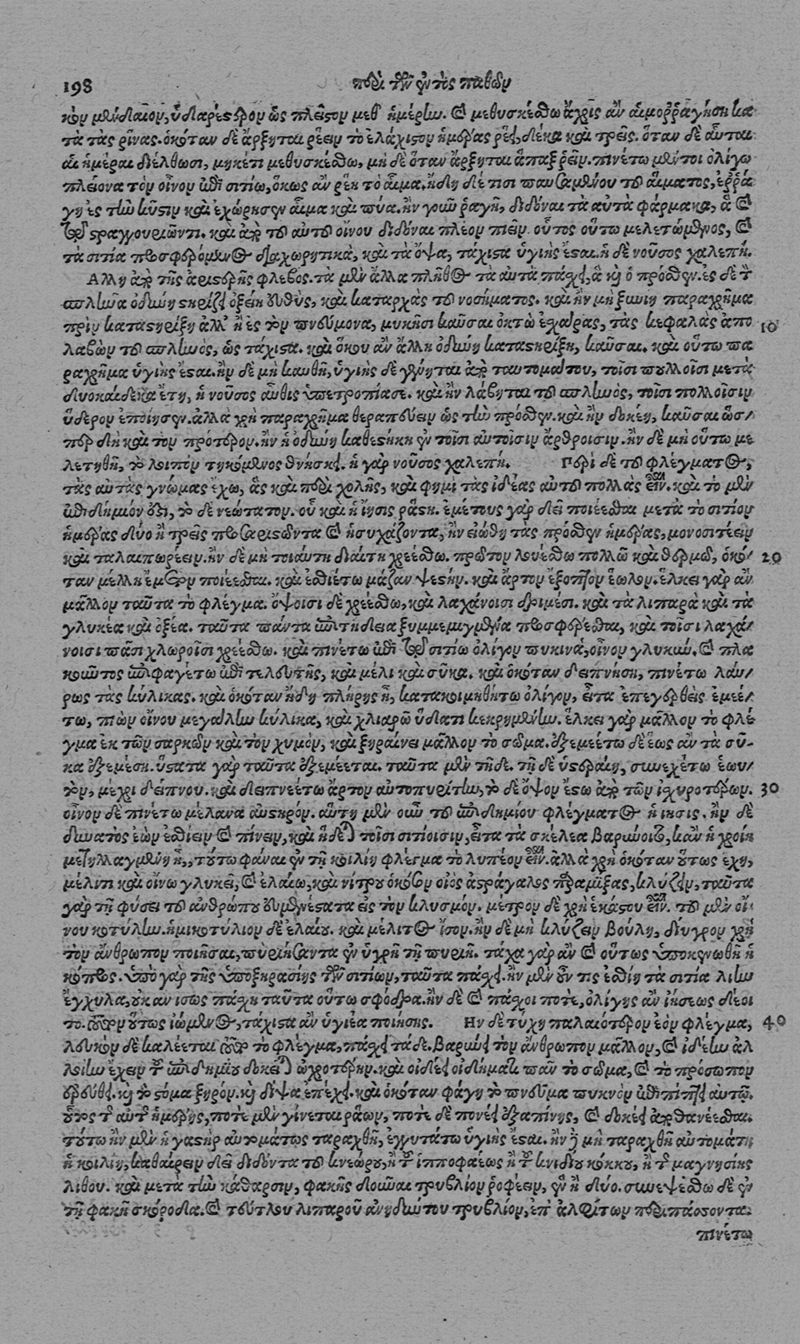 198 περὶ τῶν ἐντὸς παθῶν
κὸν μὲν δίδου, ὑδαρέστερον ὡς πλεῖστον μεθ' ἡμέρην. καὶ μεθυσκέσθω ἄχρις ἂν αἱμορραγήσῃ κα
τὰ τὰς ῥῖνας. ὁκόταν δὲ ἄρξηται ῥέειν τὸ ἐλάχιστον ἡμέρας ῥεῖ, δέκα καὶ τρεῖς. ὅταν δὲ αὗται
αἱ ἡμέραι διέλθωσι, μηκέτι μεθυσκέσθω, μὴ δὲ ὅταν ἄρξηται ἅπαξ ῥεῖν. πινέτω μέντοι ὀλίγω
πλέονα τὸν οἶνον ἐπὶ σιτίω, ὅκως ἂν ῥέῃ τὸ αἷμα. ἤδη δέ τισι παυσαμένου τοῦ αἵματος, ἐρρά
γη ἐς τὴν κύστιν καὶ ἐχώρησεν αἷμα καὶ πύα. ἢν γοῦν ῥαγῇ, διδόναι τὰ αὐτὰ φάρμακα, ἃ καὶ
τῷ στραγγουριῶντι. καὶ ἀπὸ τοῦ αὐτοῦ οἴνου διδόναι πλέον πιεῖν. οὗτος οὕτω μελετώμενος, καὶ
τὰ σιτία προσφερόμενος διαχωρητικὰ, καὶ τὰ ὄψα, τάχιστα ὑγιὴς ἔσται. ἡ δὲ νοῦσος χαλεπή.
Ἄλλη ἀπὸ τῆς ἀριστερῆς φλεβός. τὰ μὲν ἄλλα πλῆθος τὰ αὐτὰ πάσχει, ἃ καὶ ὁ πρόσθεν. ἐς δὲ τὸν
σπλῆνα ὀδύνη στηρίζει ὀξείη εὐθὺς, καὶ καταρχὰς τοῦ νοσήματος. καὶ ἢν μὴ ξυνίῃ παραχρῆμα
πρὶν καταστηρίξῃ ἀλλ' ἢ ἐς τὸν πνεύμονα, μύκησι καῦσαι ὀκτὼ ἐσχάρας, τὰς κεφαλὰς ἀπο 10
λαβὼν τοῦ σπληνὸς, ὡς τάχιστα. καὶ ὅκου ἂν ἄλλη ὀδύνη καταστηρίξῃ, καῦσαι. καὶ οὕτω πα
ραχρῆμα ὑγιὴς ἔσται. ἢν δὲ μὴ καυθῇ, ὑγιὴς δὲ γένηται ἀπὸ ταυτομάτου, τοῖσι πολλοῖσι μετὰ
δυοκαίδεκα ἔτη, ἡ νοῦσος αὖθις ὑπετροπίασε. καὶ ἢν λάβηται τοῦ σπληνὸς, τοῖσι πολλοῖσιν
ὕδερον ἐποίησεν. ἀλλὰ χρὴ παραχρῆμα θεραπεύειν ὡς τὴν πρόσθεν. καὶ ἢν δοκέῃ, καῦσαι ὥσ/
περ δὴ καὶ τὸν πρότερον. ἢν ἡ ὀδύνη καθεστήκῃ ἐν τοῖσι αὐτοῖσιν ἄρθροισιν. ἢν δὲ μὴ οὕτω με
λετηθῇ, τὸ λοιπὸν τηκόμενος θνήσκει. ἡ γὰρ νοῦσος χαλεπή. Περὶ δὲ τοῦ φλέγματος,
τὰς αὐτὰς γνώμας ἔχω, ἃς καὶ περὶ χολῆς, καὶ φημὶ τὰς ἰδέας αὐτοῦ πολλὰς εἶναι. καὶ τὸ μὲν
ἐπιδήμιόν ἐστι, τὸ δὲ νεώτατον. οὗ καὶ ἡ ἴησις ῥάστη. ἐμέτους γὰρ δεῖ ποιέεσθαι μετὰ τὸ σιτίον
ἡμέρας δύο ἢ τρεῖς προσαριστῶντα καὶ ἡσυχάζοντα, ἢν εἰώθῃ τὰς πρόσθεν ἡμέρας, μονοσιτέειν
καὶ ταλαιπωρέειν. ἢν δὲ μὴ τοιαύτῃ διαίτῃ χρεέσθω. πρῶτον λουέσθω πολλῶ καὶ θερμῶ, ὁκό/ 20
ταν μέλλῃ ἔμετον ποιέεσθαι. καὶ ἐσθιέτω μάζαν ψαιστήν. καὶ ἄρτον ἔξοπτον ἕωλον. ἕλκει γὰρ ἂν
μᾶλλον ταῦτα τὸ φλέγμα. ὄψοισι δὲ χρεέσθω, καὶ λαχάνοισι δριμέσι. καὶ τὰ λιπαρὰ καὶ τὰ
γλυκέα καὶ ὀξέα. ταῦτα πάντα ἐπιτήδεια ξυμμεμιγμένα προσφέρεσθαι, καὶ τοῖσι λαχά/
νοισι πᾶσι χλωροῖσι χρεέσθω. καὶ πινέτω ἐπὶ τῷ σιτίω ὀλίγον πυκινὰ, οἶνον γλυκὺν. καὶ πλα
κοῦντος ἐπιφαγέτω ἐπὶ τελευτῆς, καὶ μέλι καὶ σῦκα. καὶ ὁκόταν δειπνήσῃ, πινέτω λαύ/
ρως τὰς κύλικας. καὶ ὁκόταν ἤδη πλήρης ᾖ, κατακοιμηθήτω ὀλίγον, εἶτα ἐπεγερθεὶς ἐμεέ/
τω, πιὼν οἴνου μεγάλην κύλικα, καὶ χλιαρῶ ὕδατι κεκρημένην. ἕλκει γὰρ μᾶλλον τὸ φλέ
γμα ἐκ τῶν σαρκῶν καὶ τὸν χυμὸν, καὶ ξηραίνει μᾶλλον τὸ σῶμα. ἐξεμεέτω δὲ ἕως ἂν τὰ σῦ-
κα ἐξεμέσῃ. ὕστατα γὰρ ταῦτα ἐξεμέεται. ταῦτα μὲν τῇδε. τῇ δὲ ὑστεραίῃ, συνεχέτω ἑωυ/
τὸν, μέχρι δείπνου. καὶ δειπνεέτω ἄρτον αὐτοπυρίτην, τὸ δὲ ὄψον ἔστω ἀπὸ τῶν ἰσχυροτέρων. 30
οἶνον δὲ πινέτω μέλανα αὐστηρόν. αὕτη μὲν οὖν τοῦ ἐπιδημίου φλέγματος ἡ ἴησις. ἢν δὲ
δυνατὸς ἐὼν ἐσθίειν καὶ πίνειν, καὶ ἥδεται τοῖσι σιτίοισιν, εἶτα τὰ σκέλεα βαρύνοιτο, κἂν ἡ χροίη
μετηλλαγμένη ᾖ, τούτω φάναι ἐν τῇ κοιλίῃ φλέγμα τὸ λυπέον εἶναι. ἀλλὰ χρὴ ὁκόταν οὕτως ἔχῃ,
μέλιτι καὶ οἴνω γλυκεῖ, καὶ ἐλαίω, καὶ νίτρου ὁκόσον οἰὸς ἀστράγαλος παραμίξας, κλύζειν, ταῦτα
γὰρ τῇ φύσει τοῦ ἀνθρώπου εὐμενέστατα εἰς τὸν κλυσμὸν. μέτρον δὲ χρὴ ἑκάστου εἶναι. τοῦ μὲν οἴ
νου κοτύλην. ἡμικοτύλιον δὲ ἐλαίου. καὶ μέλιτος ἴσον. ἢν δὲ μὴ κλύζειν βούλῃ, δίυγρον χρὴ
τὸν ἄνθρωπον ποιῆσαι, πυριήσαντα ἐν ὑγρῇ τῇ πυρίῃ. τάχα γὰρ ἂν καὶ οὕτως ὑποκενωθῇ ἡ
κόπρος. ὑπὸ γὰρ τῆς ὑποξηρασίης τῶν σιτίων, ταῦτα πάσχει. ἢν μὲν οὖν τις ἐσθίῃ τὰ σιτία λίην
ἔγχυλα, οὐκ ἂν ἴσως πάσχῃ ταῦτα οὕτω σφόδρα. ἢν δὲ καὶ πάσχοι ποτὲ, ὀλίγης ἂν ἰήσεως δέοι
το. οὗτος οὕτως ἰώμενος, τάχιστα ἂν ὑγιέα ποιήσῃς. Ἢν δὲ τύχῃ παλαιότερον ἐὸν φλέγμα, 40
λευκὸν δὲ καλέεται τοῦτο τὸ φλέγμα, πάσχει τάδε. βαρύνει τὸν ἄνθρωπον μᾶλλον, καὶ ἰδέην ἀλ
λοίην ἔχειν τοῦ ἐπιδημίου δοκεῖ ὠχροτέρην. καὶ οἰδέει οἰδήματι πᾶν τὸ σῶμα, καὶ τὸ πρόσωπον
ἐρεύθει. καὶ τὸ στόμα ξηρόν. καὶ δίψα ἐπέχει. καὶ ὁκόταν φάγῃ τὸ πνεῦμα πυκνὸν ἐπιπίπτει αὐτῷ.
οὗτος τῆς αὐτῆς ἡμέρης, ποτὲ μὲν γίνεται ῥᾴων, ποτὲ δὲ πονέει ἐξαπίνης, καὶ δοκέει ἀποθανέεσθαι.
τούτω ἢν μὲν ἡ γαστὴρ αὐτομάτως ταραχθῇ, ἐγγυτάτω ὑγιὴς ἔσται. ἢν δὲ μὴ ταραχθῇ αὐτομάτη
ἡ κοιλίη, καθαίρειν δεῖ διδόντα τοῦ κνεώρου, ἢ τοῦ ἱπποφαέως ἢ τοῦ κνιδίου κόκκου, ἢ τῆς μαγνησίης
λίθου. καὶ μετὰ τὴν κάθαρσιν, φακῆς δοῦναι τρυβλίον ῥοφέειν, ἓν ἢ δύο. συνεψέσθω δὲ ἐν
τῇ φακῇ σκόροδα. καὶ τεύτλου λιπαροῦ ἀνηδύντου τρυβλίον, ἐπ' ἀλφίτων περιπάσσονται
πινέτω